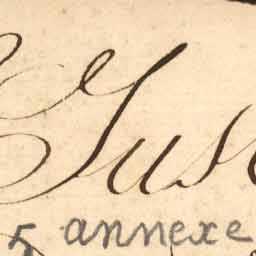 Jus
5 annexe